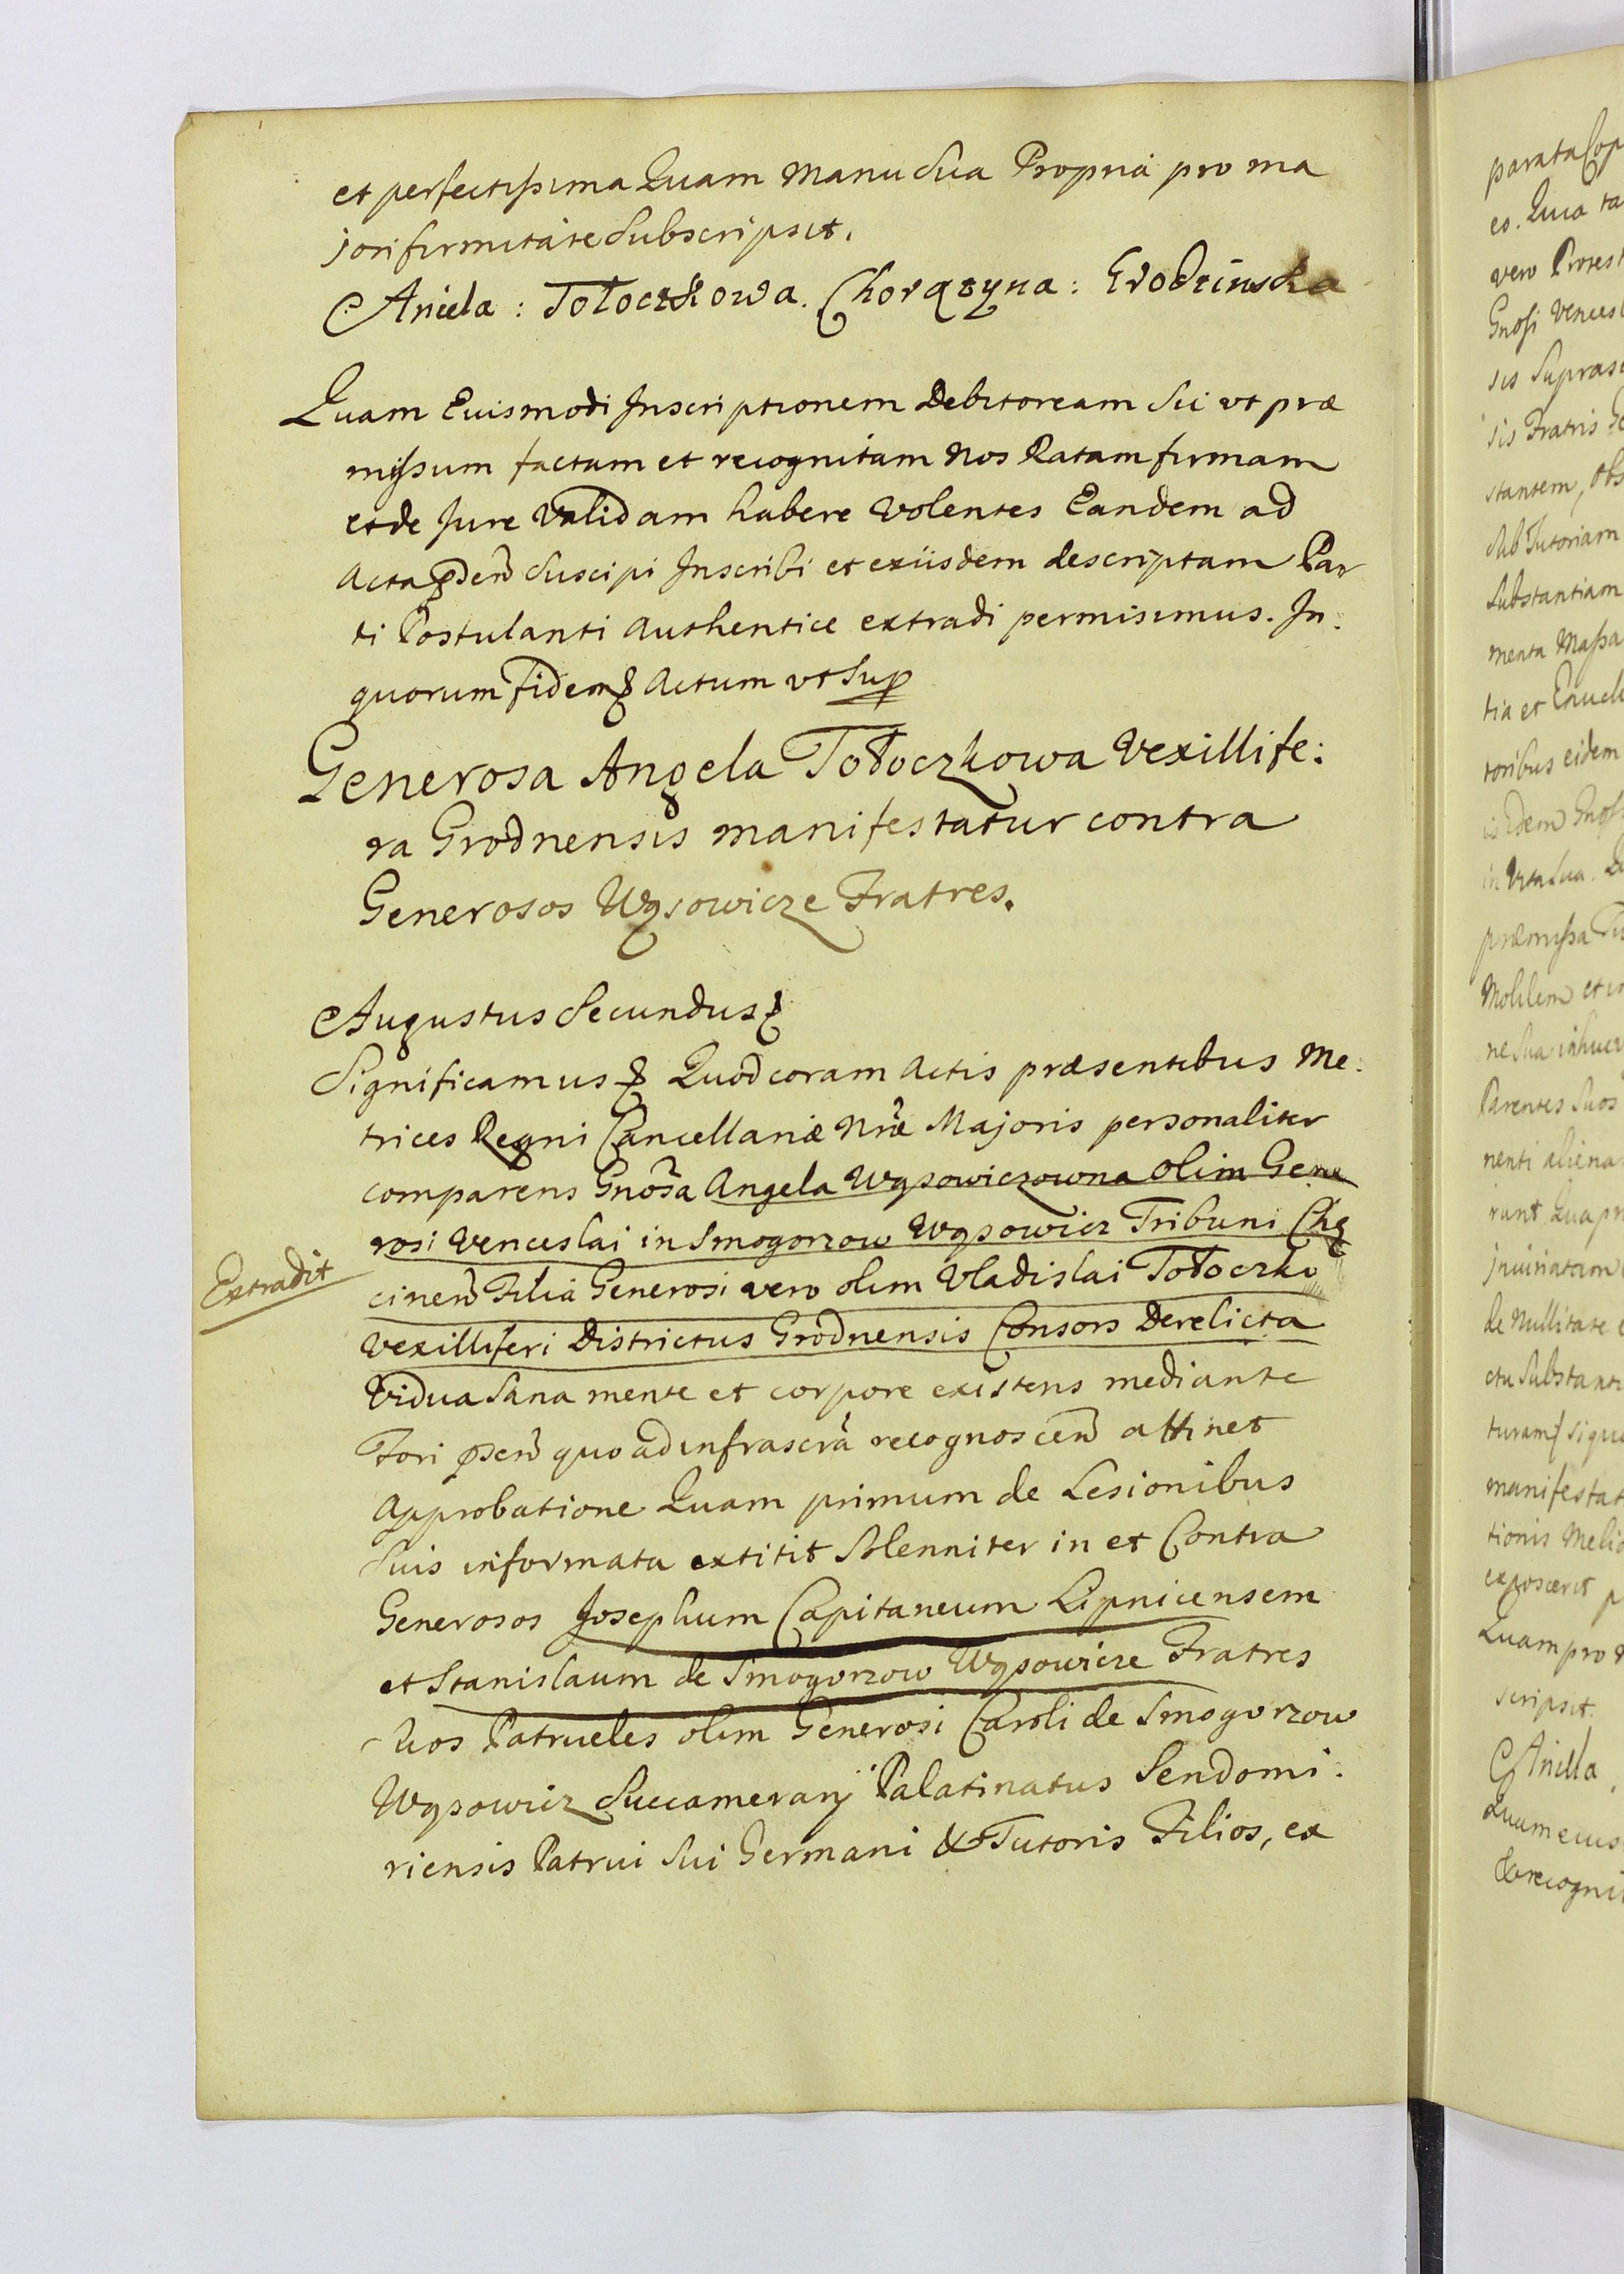 et perfectissima Quam Manu Sua Propria pro ma
jori firmitate Subscripsit.
Aniela: Tołoczkowa. Chorązyna: Grodzinska
Quam Euismodi Inscriptionem Debitoream Sic ut præ
missum factam et recognitam Nos Ratam firmam
et de Jure Validam habere Volentes Eandem ad
Acta pñden Suscipi Inscribi et exiisdem descriptam Par
ti Postulanti Authentice extradi permisimus. In:
quorum fidem & Actum ut Sup
Generosa Angela Tołoczkowa Vexillife:
ra Grodnensis manifestatur contra
Generosos Wąsowicze Fratres.
Augustus Secundus &
Significamus & Quod coram Actis præsentibus Me:
trices Regni Cancellariæ Nræ Majoris personaliter
comparens Gnosa Angela Wąsowiczowna Olim Gene
rosi Venceslai in Smogorzow Wąsowicz Tribuni Chę
cinen Filia Generosi vero olim Vladislai Tołoczko
Vexilliferi Districtus Grodnensis Consors Derelicta
Extradit
Vidua Sana mente et corpore existens mediante
Fori pñsen quo ad infrascra recognoscen attinet
Approbatione Quam primum de Lesionibus
Suis informata extitit Solenniter in et Contra
Generosos Josephum Capitaneum Lipnicensem
et Stanislaum de Smogorzow Wąsowicze Fratres
Suos Patrueles olim Generosi Caroli de Smogorzow
Wąsowicz Succamerarij Palatinatus Sendomi:
riensis Patrui Sui Germani & Tutoris Filios, ex
parata Cop
eo. Quia ta
vero Protest
Gnosi Vencesl
sis Supras
sis Fratris Ge
stantem, Obs
Sub Tutoriam
Substantiam
menta Massa
tia et
toribus eidem
Idem Gnos
in Vita Sua.
præmissa
Mobilem et
ne Sua
Parentes Suos
nenti aliena
runt Qua pr
Injuriatam
de Nullitate
ctu Substanti
turam &
manifestat
tionis Melio
exposcerit p
Quam pro
scripsit.
Aniela
Quam eius
& recognit